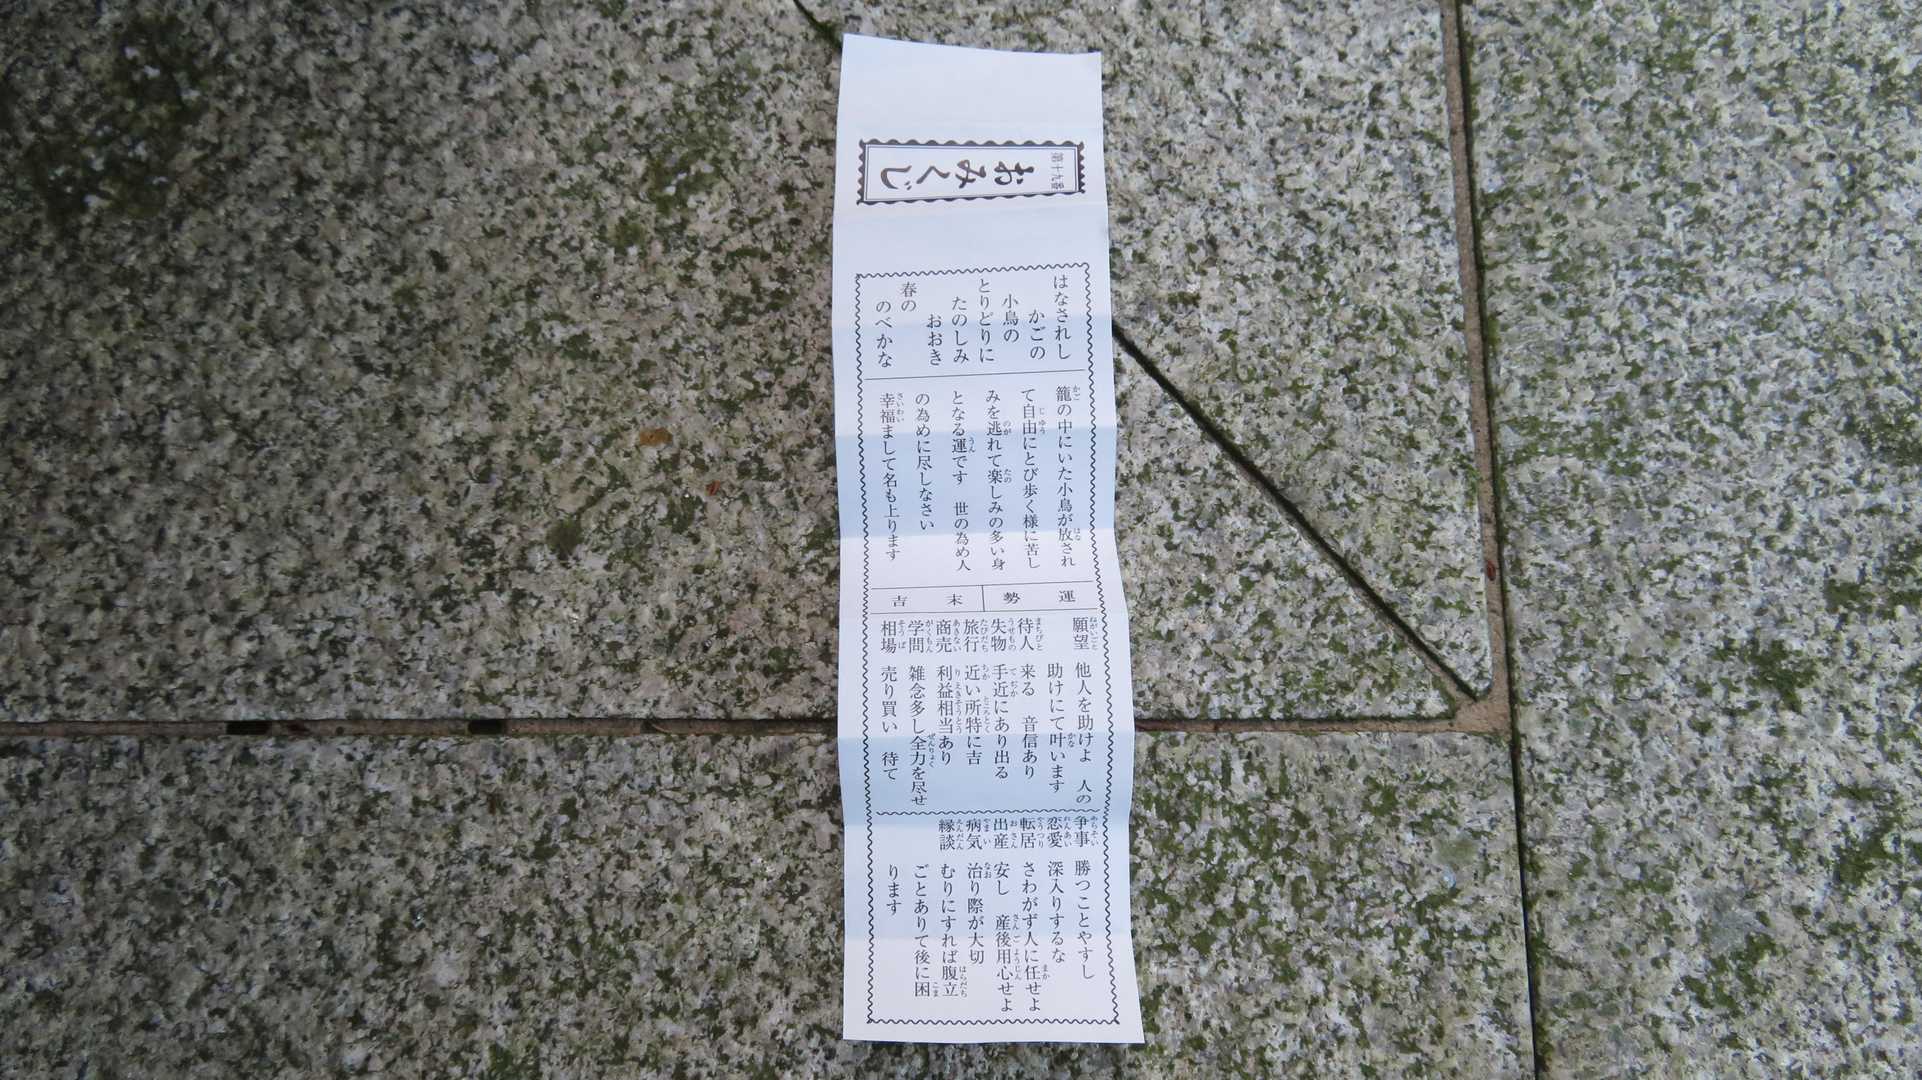 第十九番
おみくじ
はなされし
かごの
小鳥の
とりどりに
たのしみ
おおき
春の
のべかな
籠の中にいた小鳥が放され
て自由にとび歩く様に苦し
みを逃れて楽しみの多い身
となる運です　世の為め人
の為めに尽しなさい
幸福まして名も上ります
運勢　末吉
願望　他人を助けよ　人の
助けにて叶います
待人　来る　音信あり
失物　手近にあり出る
旅行　近い所特に吉
商売　利益相当あり
学問　雑念多し全力を尽せ
相場　売り買い　待て
争事　勝つことやすし
恋愛　深入りするな
転居　さわがず人に任せよ
出産　安し　産後用心せよ
病気　治り際が大切
縁談　むりにすれば腹立
ごとありて後に困
ります